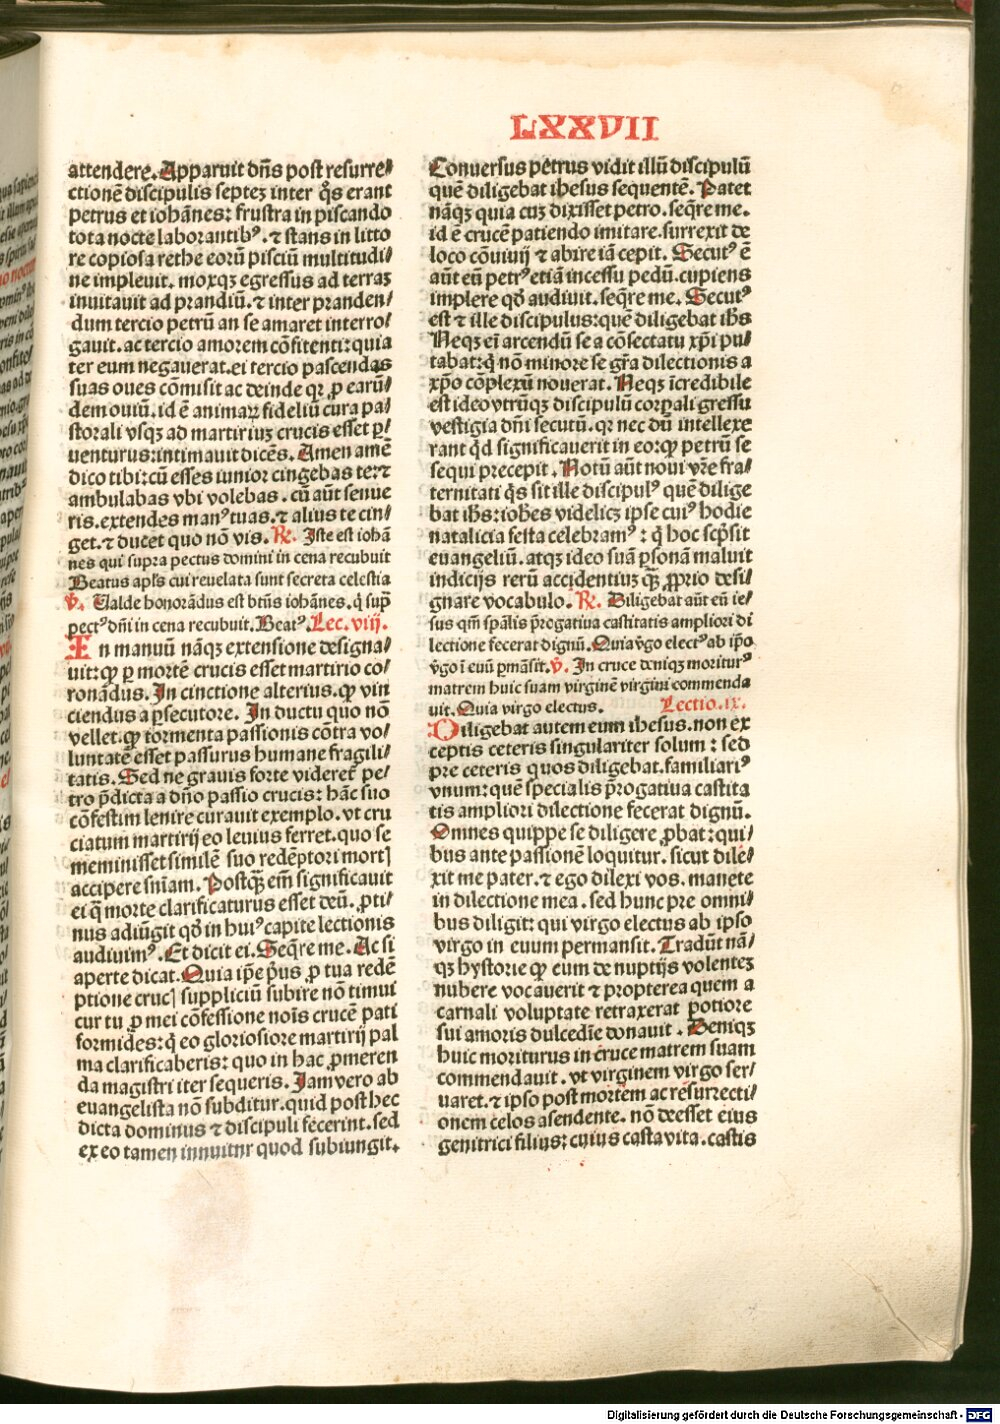 LXXVII
attendere. Apparuit dn̄s post resurre⸗
ctionē discipulis septeꝫ inter q̊s erant
petrus et iohānes: frustra in piscando
tota nocte laborantibꝰ. ⁊ stans in litto
re copiosa rethe eorū pisciū multitudi⸗
ne impleuit. moxqꝫ egressus ad terraꝫ
inuitauit ad prandiū. ⁊ inter pranden⸗
dum tercio petrū an se amaret interro⸗
gauit. ac tercio amorem cōfitenti: quia
ter eum negauerat. ei tercio pascendas
suas oues cōmisit ac deinde qꝛ ꝓ earū⸗
dem ouiū. id ē animaꝝ fideliū cura pa⸗
storali vsqꝫ ad martiriuꝫ crucis esset ꝑ⸗
uenturus: intimauit dicēs. Amen amē
dico tibi: cū esses iunior cingebas te: ⁊
ambulabas vbi volebas. cū aūt senue
ris. extendes manꝰ tuas. ⁊ alius te cin⸗
get. ⁊ ducet quo nō vis. ℟. Iste est iohā
nes qui supra pectus domini in cena recubuit
Beatus apl̄s cui reuelata sunt secreta celestia
℣. Valde honorādus est bt̄us iohānes. q̇ sup̄
pectꝰ dn̄i in cena recubuit. Beatꝰ. Lec. viij.
In manuū nāqꝫ extensione designa⸗
uit: ꝙ ꝑ mortē crucis esset martirio co⸗
ronādus. In cinctione alterius. ꝙ vin
ciendus a ꝑsecutore. In ductu quo nō
vellet. ꝙ tormenta passionis cōtra vo⸗
luntatē esset passurus humane fragili⸗
tatis. Sed ne grauis forte videret̄ pe⸗
tro p̄dicta a dn̄o passio crucis: hāc suo
cōfestim lenire curauit exemplo. vt cru
ciatum martirij eo leuius ferret. quo se
meminisset similē suo redēptori mortꝭ
accipere sn̄iam. Postqꝫ̄ em̄ significauit
ei q̄ morte clarificaturus esset deū. ꝓti⸗
nus adiūgit qd̓ in huiꝰ capite lectionis
audiuimꝰ. Et dicit ei. Seq̄re me. Ac si
aperte dicat. Quia ip̄e p̓us ꝓ tua redē
ptione crucꝭ suppliciū subire nō timui
cur tu ꝓ mei cōfessione nois̄ crucē pati
formides: q̇ eo gloriosiore martirij pal
ma clarificaberis: quo in hac ꝓmeren
da magistri iter sequeris. Iam vero ab
euangelista nō subditur. quid post hec
dicta dominus ⁊ discipuli fecerint. sed
ex eo tamen innuitur quod subiungit.
Conuersus petrus vidit illū discipulū
quē diligebat ihesus sequentē. Patet
nāqꝫ quia cuꝫ dixisset petro. seq̄re me.
id ē crucē patiendo imitare. surrexit de
loco cōuiuij ⁊ abire iā cepit. Secutꝰ ē
aūt eū petrꝰ etiā incessu pedū. cupiens
implere qd̓ audiuit. seq̄re me. Secutꝰ
est ⁊ ille discipulus: quē diligebat ih̄s
Neqꝫ eī arcendū se a cōsectatu xp̄i pu⸗
tabat: q̇ nō minore se gr̄a dilectionis a
xp̄o cōplexū nouerat. Neqꝫ īcredibile
est ideo vtrūqꝫ discipulū corꝑali gressu
vestigia dn̄i secutū. qꝛ nec dū intellexe
rant q̇d significauerit in eo: ꝙ petrū se
sequi precepit. Notū aūt noui vr̄e fra⸗
ternitati q̇s sit ille discipulꝰ quē dilige
bat ih̄s: ioh̄es videlicꝫ ipse cuiꝰ hodie
natalicia festa celebramꝰ: q̇ hoc sc̄psit
euangeliū. atqꝫ ideo suā ꝑsonā maluit
indicijs rerū accidentiuꝫ qꝫ̄ ꝓprio desi⸗
gnare vocabulo. ℟. Diligebat aūt eū ie⸗
sus qm̄ sp̄alis p̄rogatiua castitatis ampliori di
lectione fecerat dignū. Quia v̓go electꝰ ab ip̄o
v̓go ī euū ꝑmāsit. ℣. In cruce deniqꝫ morituꝰ
matrem huic suam virginē virgini commenda
uit. Quia virgo electus. Lectio. ix.
Diligebat autem eum ihesus. non ex
ceptis ceteris singulariter solum: sed
pre ceteris quos diligebat. familiariꝰ
vnum: quē specialis p̄rogatiua castita
tis ampliori dilectione fecerat dignū.
Omnes quippe se diligere ꝓbat: qui⸗
bus ante passionē loquitur. sicut dile⸗
xit me pater. ⁊ ego dilexi vos. manete
in dilectione mea. sed hunc pre omni⸗
bus diligit: qui virgo electus ab ipso
virgo in euum permansit. Tradūt nā⸗
qꝫ hystorie ꝙ eum de nuptijs volenteꝫ
nubere vocauerit ⁊ propterea quem a
carnali voluptate retraxerat potiore
sui amoris dulcedīe donauit. Deniqꝫ
huic moriturus in cruce matrem suam
commendauit. vt virginem virgo ser⸗
uaret. ⁊ ipso post mortem ac resurrecti⸗
onem celos asendente. nō deesset eius
genitrici filius: cuius casta vita. castis
Digitalisierung gefördert durch die Deutsche Forschungsgemeinschaft - DFG